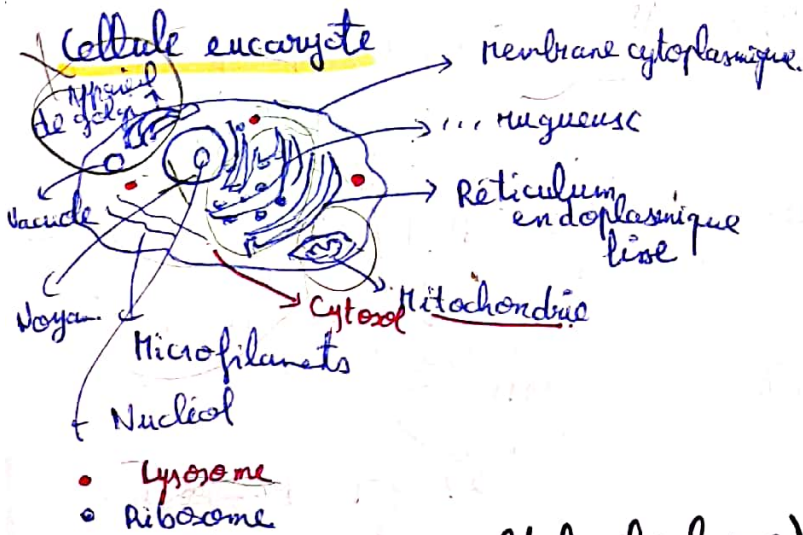 Cellule eucaryote
Appareil
de golgi
membrane cytoplasmique.
... rugueuse
Réticulum
endoplasmique
lisse
Vacuole
Noyau
Cytosol
Mitochondrie
Microfilaments
Nucléol
Lysosome
Ribosome